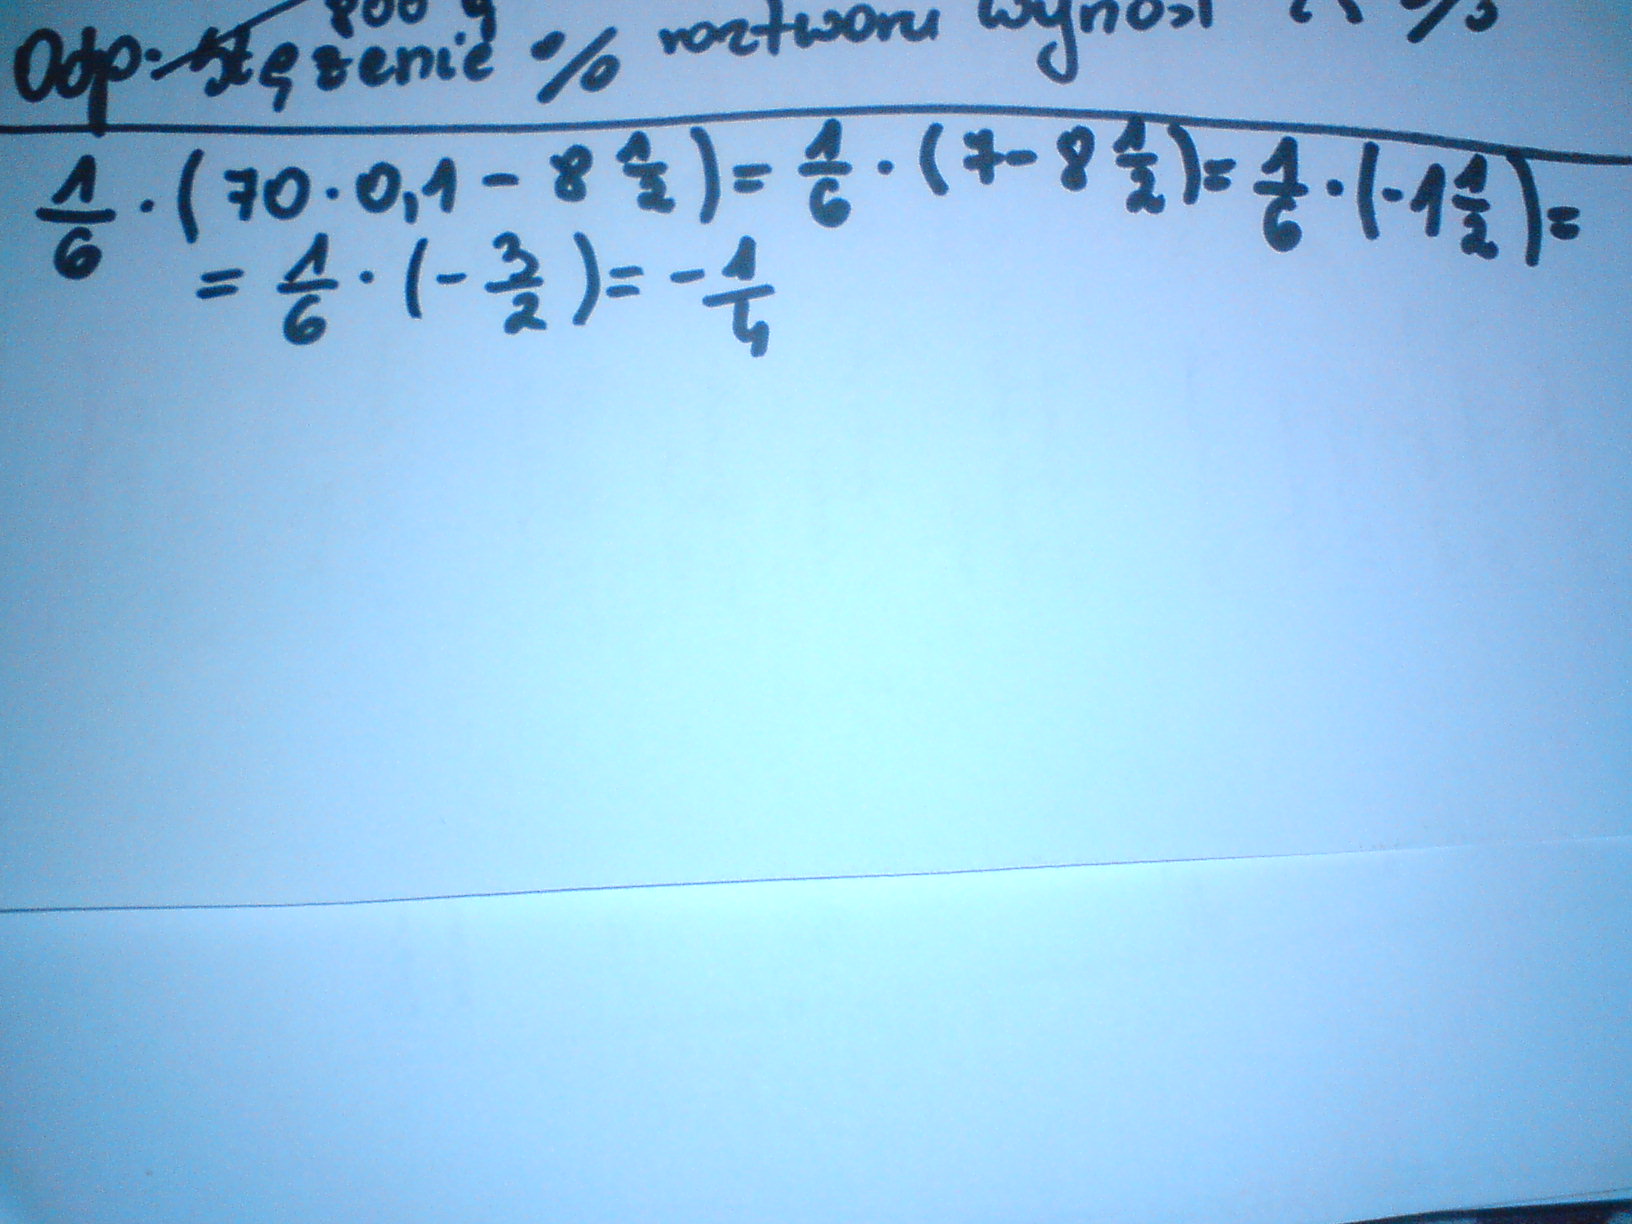 800 g
Odp. Stężenie % roztworu wynosi %
1/6 · (70 · 0,1 - 8 1/2) = 1/6 · (7 - 8 1/2) = 1/6 · (-1 1/2) =
= 1/6 · (- 3/2) = - 1/4